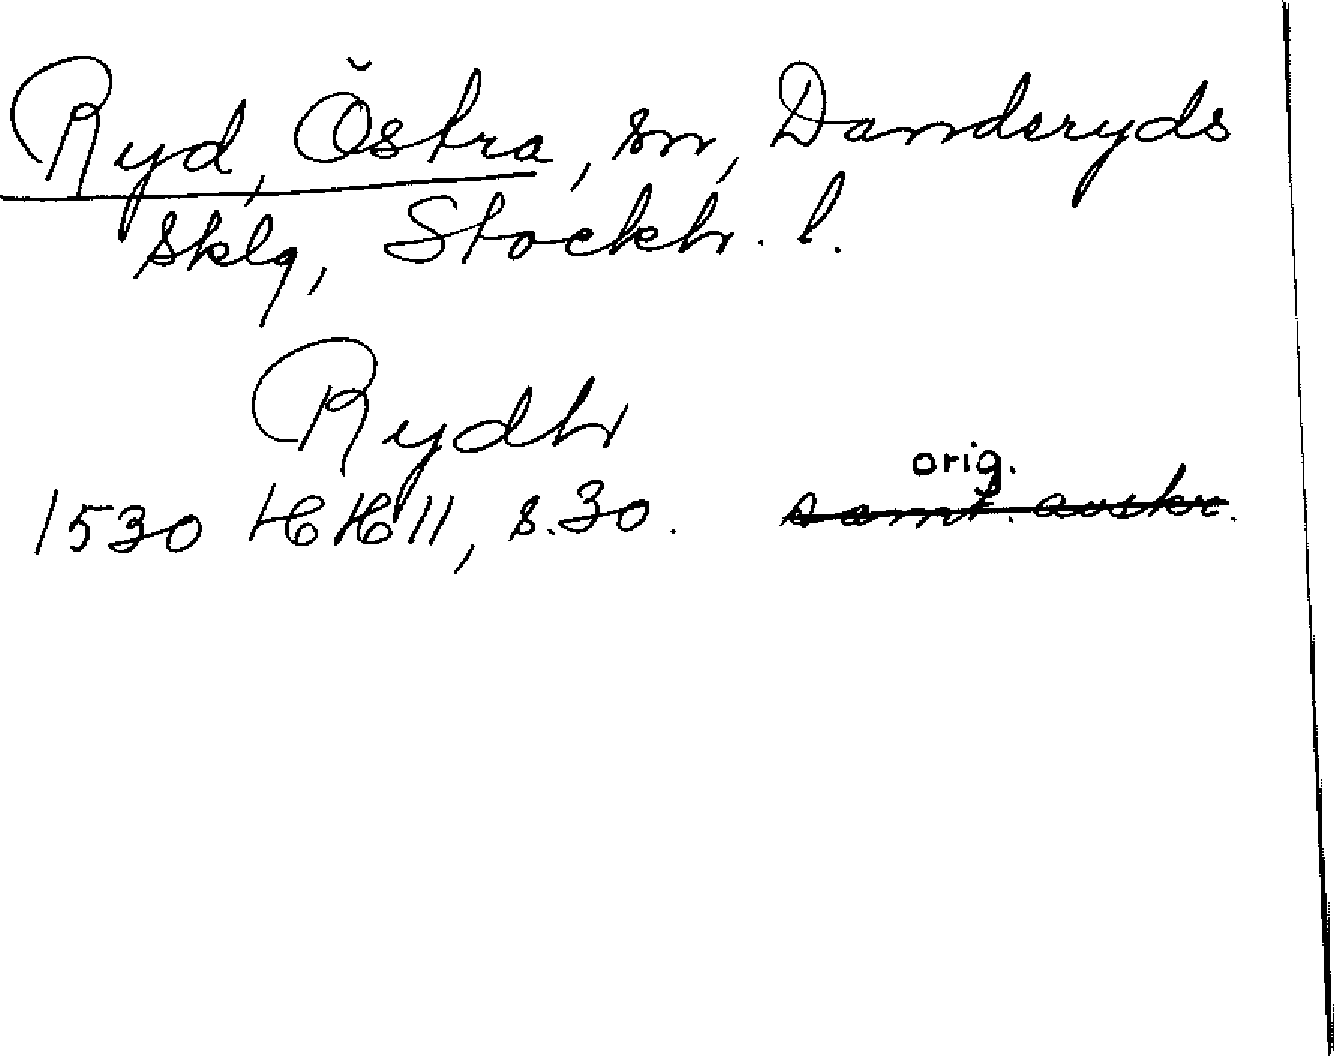 Ryd, Östra, sn, Danderyds
sklg, Stockh. l.
Rydh
orig.
1530 HH 11, s. 30. samt. avskr.